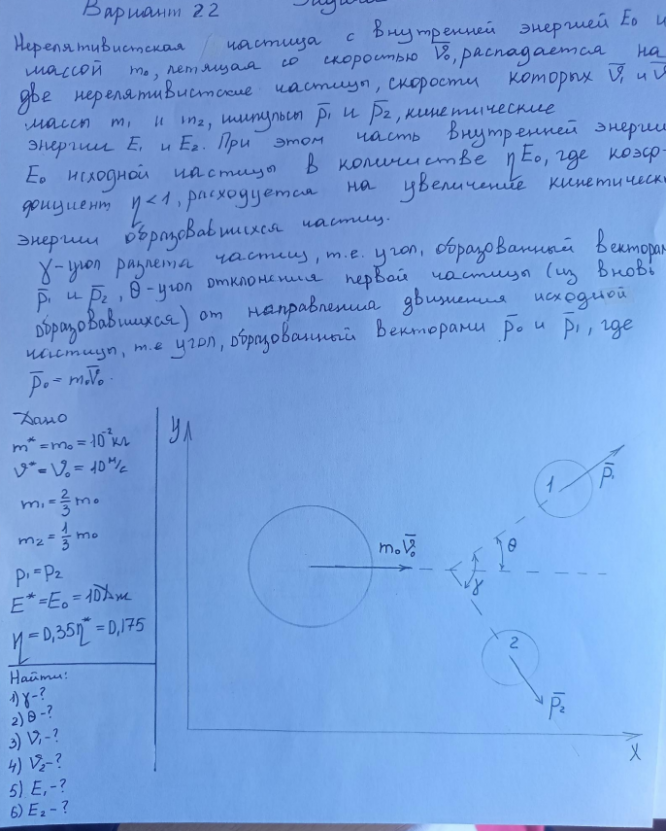 Вариант 2.2
Нерелятивистская частица с внутренней энергией E₀ и
массой m₀, летящая со скоростью V̄₀, распадается на
две нерелятивистские частицы, скорости которых V̄₁ и V̄
массы m₁ и m₂, импульсы p̄₁ и p̄₂, кинетические
энергии E₁ и E₂. При этом часть внутренней энергии
E₀ исходной частицы в количестве ηE₀, где коэф-
фициент η<1, расходуется на увеличение кинетическ
энергии образовавшихся частиц.
γ-угол разлета частиц, т.е. угол, образованный векторам
p̄₁ и p̄₂, θ-угол отклонения первой частицы (из вновь
образовавшихся) от направления движения исходной
частицы, т.е угол, образованный векторами p̄₀ и p̄₁, где
p̄₀ = m₀V̄₀.
Дано
m* = m₀ = 10⁻² кг
V* = V₀ = 10 м/с
m₁ = 2/3 m₀
m₂ = 1/3 m₀
p₁ = p₂
E* = E₀ = 1 Дж
η = 0,35η* = 0,175
Найти:
1) γ-?
2) θ-?
3) V₁-?
4) V₂-?
5) E₁-?
6) E₂-?
y
m₀V̄₀
1
p̄₁
θ
γ
2
p̄₂
x